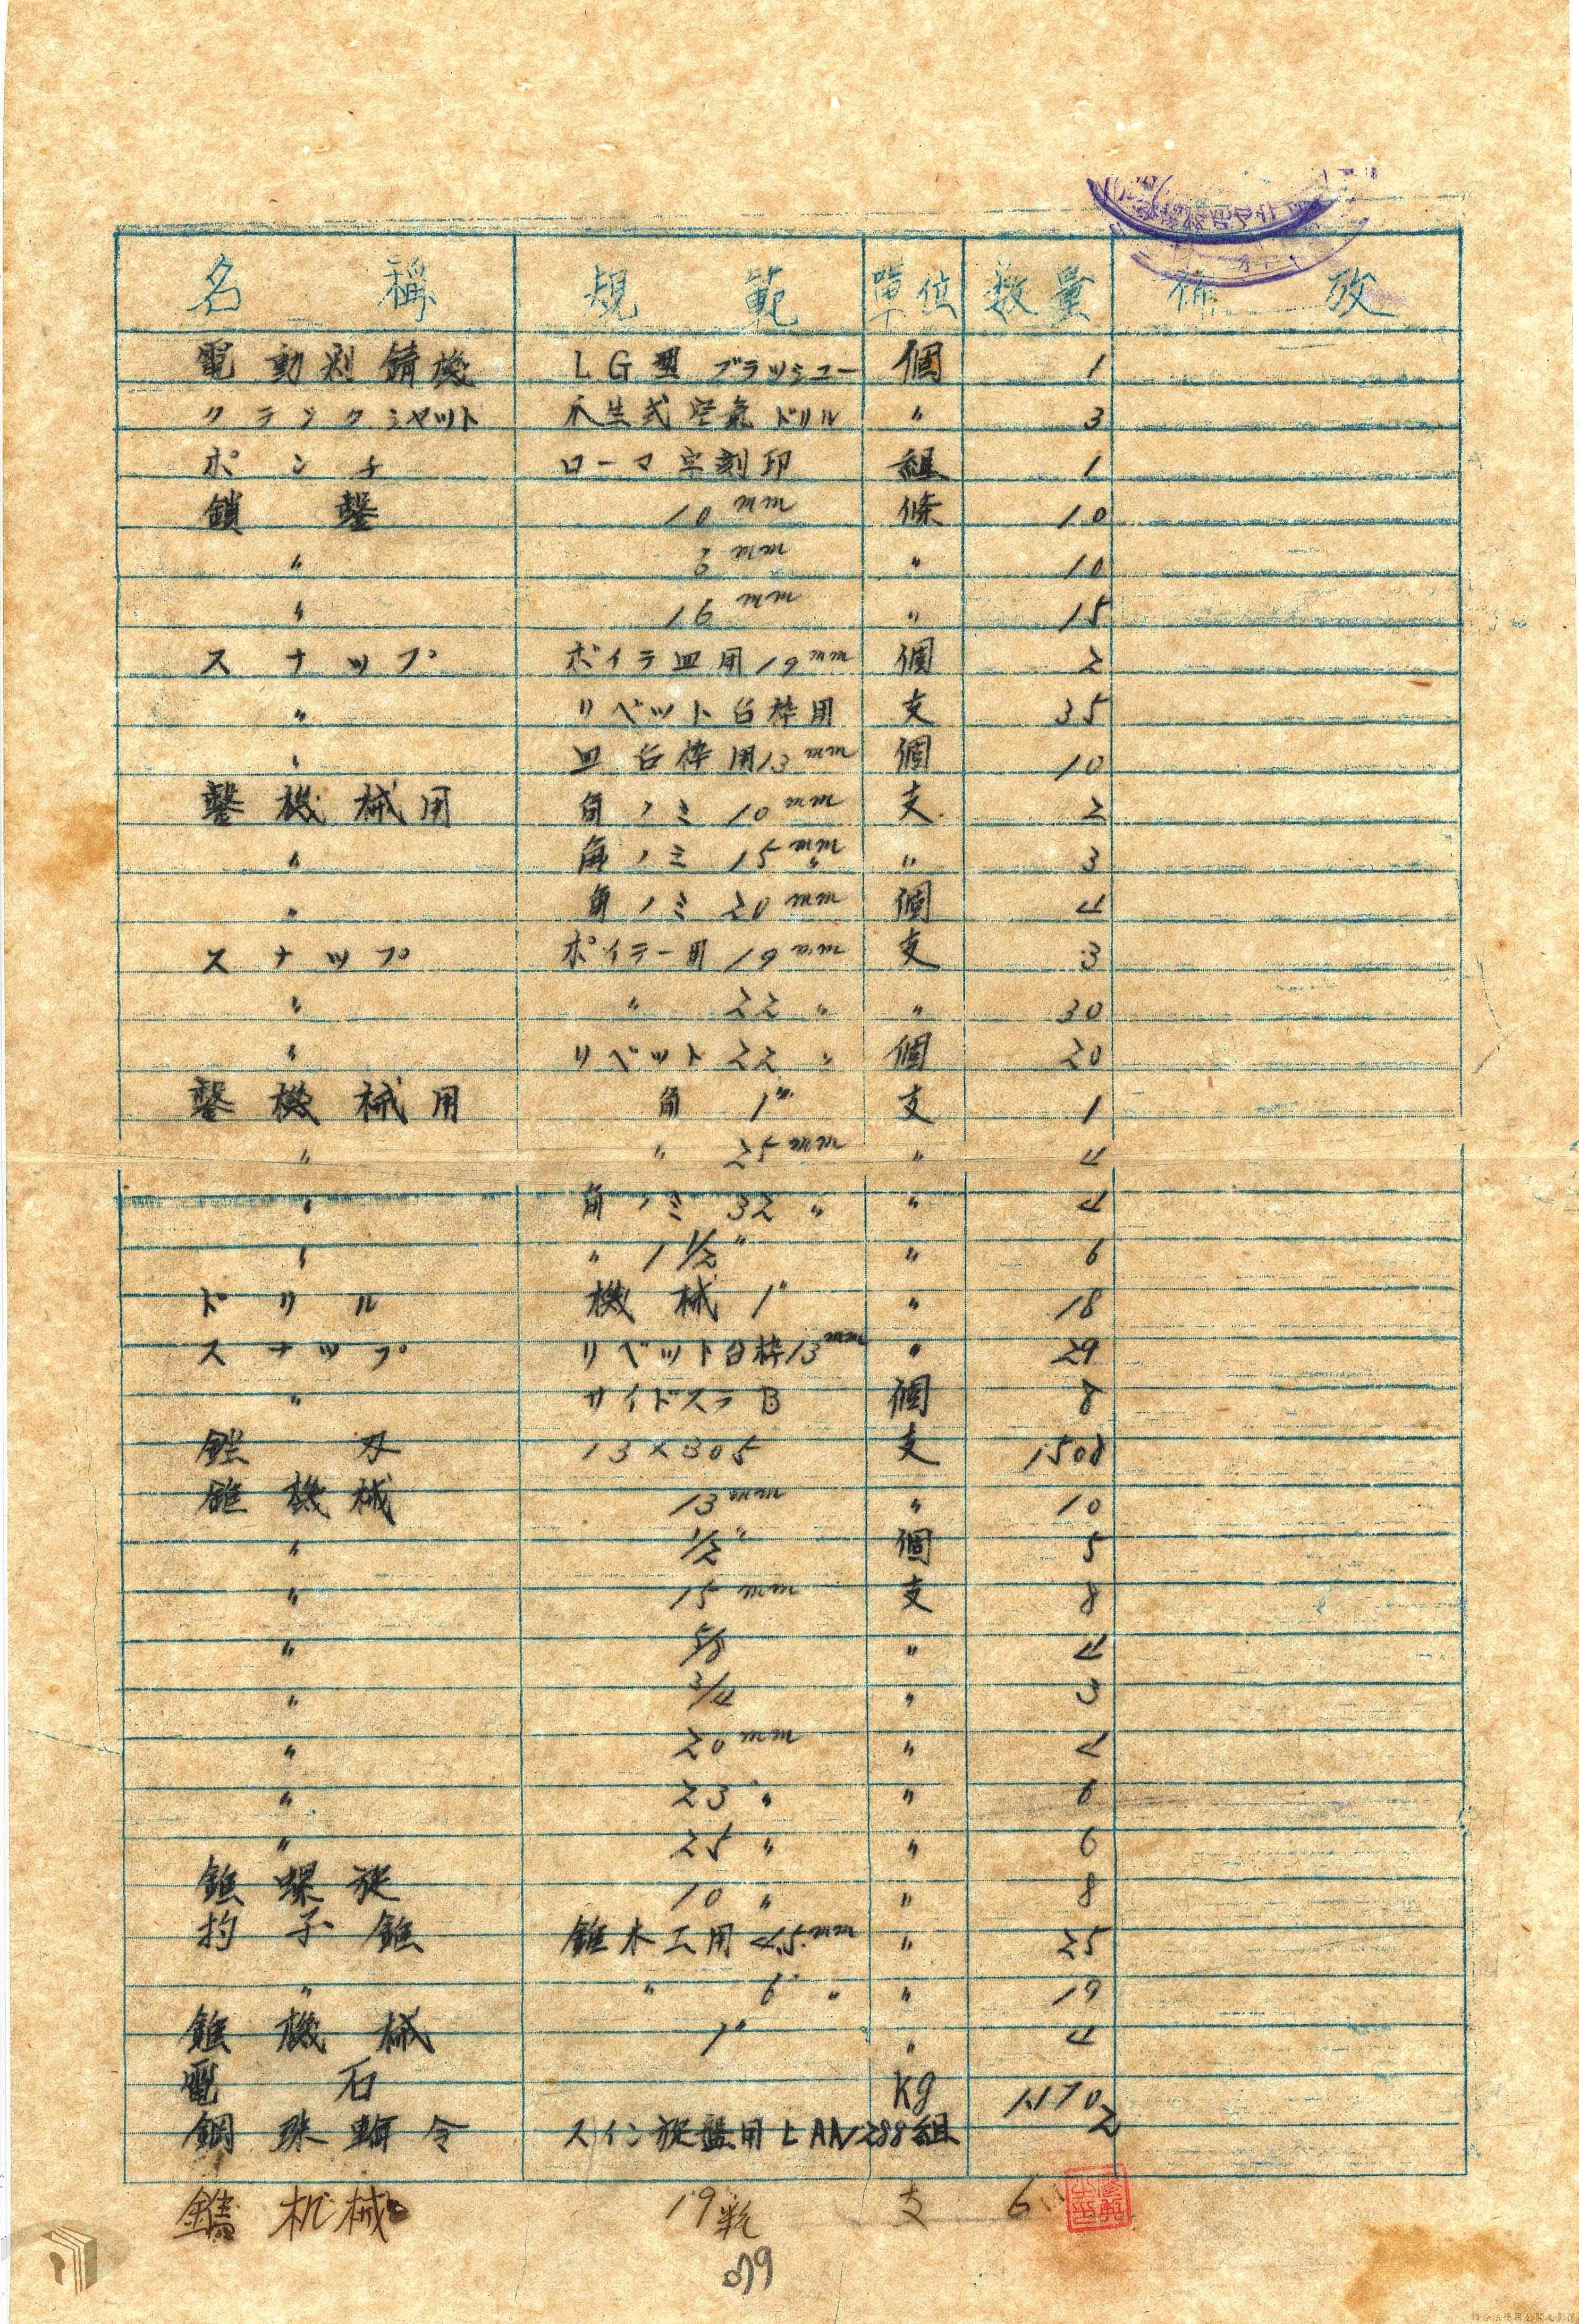 名稱 規範 單位 数量 備攷
電動剥錆機 LG型 ブラッシユー 個 1
クランクシヤット 永生式空氣ドリル 〃 3
ポンチ ローマ字刻印 組 1
鎖鑿 10mm 條 10
〃 mm 〃 10
〃 16mm 〃 15
スナップ ボイラ皿用19mm 個 2
〃 リベット台枠用 支 35
〃 皿台枠用13mm 個 10
鑿機械用 角ノミ 10mm 支 2
〃 角ノミ 15mm 〃 3
〃 角ノミ 20mm 個 4
スナップ ボイラー用19mm 支 3
〃 〃 22〃 〃 30
〃 リベット22〃 個 20
鑿機械用 角 1" 支 1
〃 〃 25mm 〃 4
〃 角ノミ 32〃 〃 4
〃 〃 1 1/2" 〃 6
ドリル 機械 1" 〃 18
スナップ リベット台枠13mm 〃 29
〃 サイドスラB 個 8
刃 13×305 支 1508
錐機械 13mm 〃 10
〃 1/2" 個 5
〃 15mm 支 8
〃 5/8 〃 4
〃 3/4 〃 3
〃 20mm 〃 4
〃 23〃 〃 6
〃 25〃 〃 6
錐螺旋 10〃 〃 8
杓子錐 錐木工用 4.5mm 〃 25
〃 〃 6〃 〃 19
錐機械 1" 〃 4
電石 Kg 1,170
鋼珠軸令 スイン旋盤用 組 2
机械 19粍 支 6
079